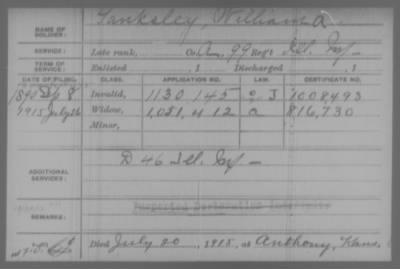 NAME OF SOLDIER: Tanksley, William A.
SERVICE: Late rank, Co. A, 99 Reg't Ill. Inf.
TERM OF SERVICE: Enlisted , 1 Discharged , 1
DATE OF FILING. CLASS. APPLICATION NO. LAW. CERTIFICATE NO.
1890 8 Invalid, 1130 145 J 1008493
1915 July 26 Widow, 1,051,412 a 816,730
Minor,
ADDITIONAL SERVICES: D 46 Ill. Inf.
REMARKS:
Died July 20, 1915, at Anthony, Kans.